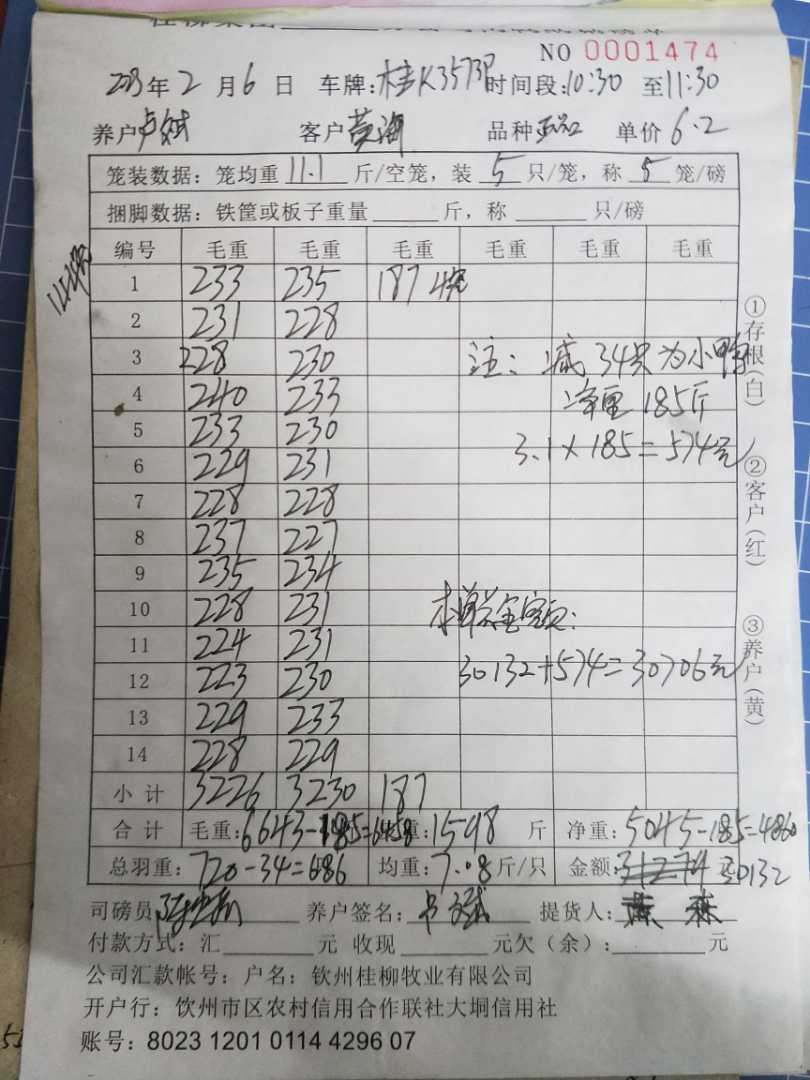 NO 0001474
2023年2月6日 车牌:桂K3573P 时间段:10:30 至11:30
养户 卢斌 客户 黄海 品种 正品 单价 6.2
笼装数据:笼均重 11.1 斤/空笼,装 5 只/笼,称 5 笼/磅
捆脚数据:铁筐或板子重量 斤,称 只/磅
编号 毛重 毛重 毛重 毛重 毛重 毛重
1 233 235 187 4笼
2 231 228
3 228 230 注:减34只为小鸭
4 240 233 净重185斤
5 233 230 3.1×185=574元
6 229 231
7 228 228
8 237 227
9 235 234
10 228 231 本单总金额:
11 224 231
12 223 230 30132+574=30706元
13 229 233
14 228 229
小计 3226 3230 187
合计 毛重:6643-185=6458 重:1598 斤 净重:5045-185=4860
总羽重:720-34=686 均重:7.08斤/只 金额:31274 元 30132
司磅员 养户签名: 提货人:
付款方式:汇 元 收现 元欠(余): 元
公司汇款帐号:户名:钦州桂柳牧业有限公司
开户行:饮州市区农村信用合作联社大垌信用社
账号:8023 1201 0114 4296 07
①存根(白)
②客户(红)
③养户(黄)